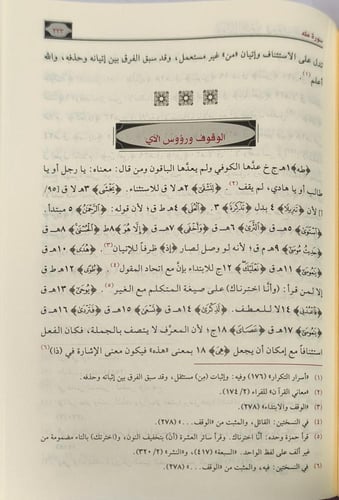 سورة طه
٢٢٣
تدل على الاستئناف وإتيان «من» غير مستعمل، وقد سبق الفرق بين إتيانه وحذفه، والله
أعلم (١).
الوقوف ورؤوس الآي
﴿طه﴾ ١هـ ج خ عدّها الكوفي ولم يعدّها الباقون ومن قال: معناه: يا رجل أو يا
طالب أو يا هادي، لم يقف (٢). ﴿لِتَشْقَىٰ﴾ ٢هـ لا ق للاستثناء. ﴿يَخْشَىٰ﴾ ٣هـ لا ق [٩٥/
أ] لأن ﴿تَنزِيلًا﴾ ٤ بدل ﴿تَذْكِرَةً﴾ ٣. ﴿الْعُلَى﴾ ٤هـ ط ق؛ لأن قوله: ﴿الرَّحْمَٰنُ﴾ ٥ مبتدأ.
﴿اسْتَوَىٰ﴾ ٥هـ ق ﴿الثَّرَىٰ﴾ ٦هـ ق ﴿وَأَخْفَى﴾ ٧هـ ق ﴿إِلَّا هُوَ﴾ ٨ط ﴿الْحُسْنَىٰ﴾ ٨هـ ق
﴿حَدِيثُ مُوسَىٰ﴾ ٩هـ م ق؛ لأنه لو وصل لصار ﴿إِذْ﴾ ظرفاً للإتيان (٣). ﴿هُدًى﴾ ١٠هـ ق
﴿يَٰمُوسَىٰ﴾ ١١هـ ق ﴿نَعْلَيْكَ﴾ ١٢ج للابتداء بإنَّ مع اتحاد المقول (٤). ﴿طُوًى﴾ ١٢هـ ط ق
إلا لمن قرأ: (وأنَّا اخترناك) على صيغة المتكلم مع الغير (٥). ﴿يُوحَىٰ﴾ ١٣هـ ق
﴿فَاعْبُدْنِي﴾ ١٤لا للعطف. ﴿لِذِكْرِي﴾ ١٤هـ ق ﴿تَسْعَىٰ﴾ ١٥هـ ق ﴿فَتَرْدَىٰ﴾ ١٦هـ ق
﴿يَٰمُوسَىٰ﴾ ١٧هـ ق ﴿عَصَايَ﴾ ١٨ج؛ لأن المعرّف لا يتصف بالجملة، فكان الفعل
استئنافاً مع إمكان أن يجعل ﴿هِيَ﴾ ١٨ بمعنى «هذه» فيكون معنى الإشارة في (ذا) (٦)
(١) «أسرار التكرار» (١٧٦) وفيه: وإثبات (من) مستقل، وقد سبق الفرق بين إثباته وحذفه.
(٢) «معاني القرآن» للفراء (٢/ ١٧٤).
(٣) «الوقف والابتداء» (٢٧٨).
(٤) في النسختين: القائل، والمثبت من «الوقف...» (٢٧٨).
(٥) قرأ حمزة وحده: أنَّا اخترناك. وقرأ سائر العشرة (أنَا) بتخفيف النون، و(اخترتك) بالتاء مضمومة من
غير ألف على لفظ الواحد. «السبعة» (٤١٧)، و«النشر» (٢/ ٣٢٠).
(٦) في النسختين: فيه، والمثبت من «الوقف...» (٢٧٨).